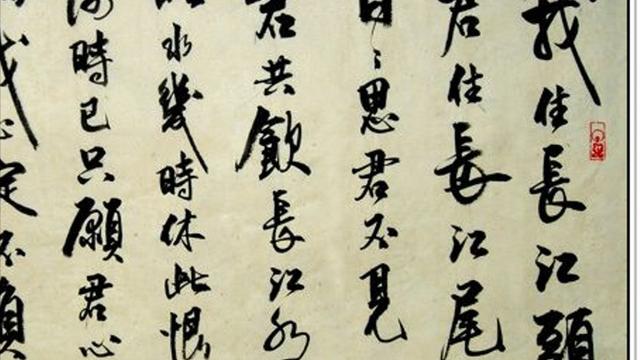 我住長江頭
君住長江尾
日々思君不見
君共飲長江水
此水幾時休此恨
何時已只願君心
我心定不負